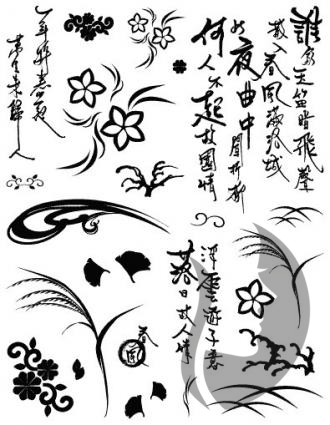 誰家玉笛暗飛聲
散入春風滿洛城
此夜曲中聞折柳
何人不起故園情
一年將盡夜
萬里未歸人
浮雲遊子意
落日故人情
春